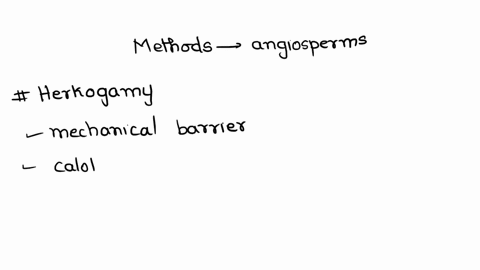 Methods → angiosperms
# Herkogamy
- mechanical barrier
- calol